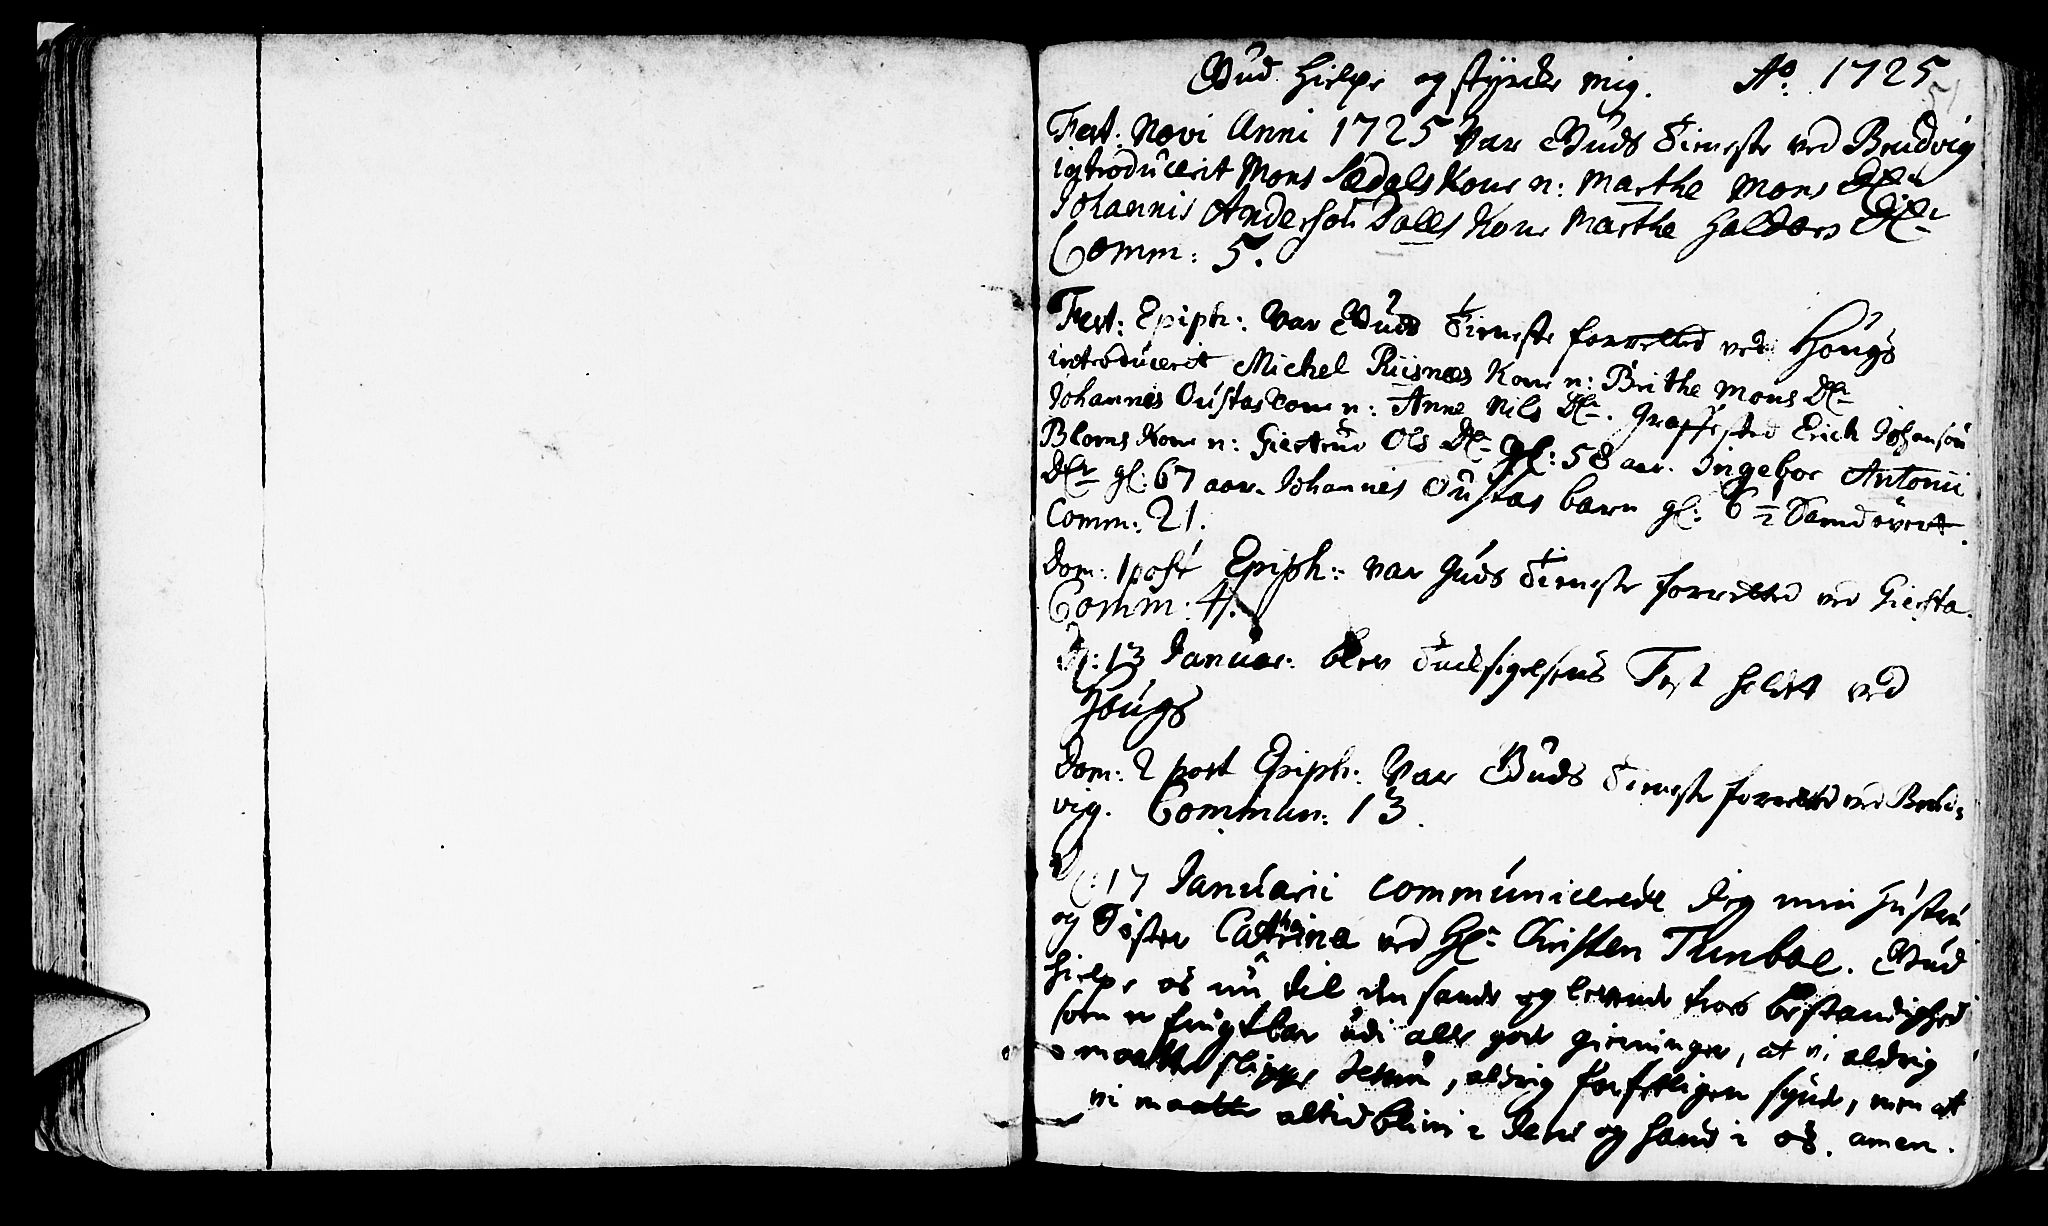 Gud hielpe og styrcke mig. Ao. 1725
51
Fest: Novi Anni 1725 Var Guds tieneste ved Brudvig
introducerit Mons Sædals Kone n: Marthe Mons Dtr
Johannis Anderson Dalls Kone Marthe Haldors Dtr
Comm: 5.
Fest: Epiph: Var Guds tieneste forretted ved Hougs
introducerit Michel Riisnæs Kone n: Brithe Mons Dtr
Johannes Oustas Kone n: Anne Nils Dtr. Graffested Erich Johanson
Bloms Kone n: Giertrud Ols Dtr gl: 58 aar. Ingebor Antonii
Dtr gl: 67 aar. Johannes Oustas barn gl: 6
Comm: 21.
Dom: 1 post Epiph: var Guds tieneste forretted ved Giersta.
Comm: 4.
D: 13 Januar: blev Fest holdet ved
Hougs
Dom: 2 post Epiph: Var Guds tieneste forretted ved Brud-
vig. Commun: 13.
D: 17 Januarii communicerede Jeg min Hustru
og Søster Cathrina ved Hr Christen Tunboe. Gud
hielpe os nu til den sande og levende troes bestandighed
som er frugtbar udi alle gode gierninger, at vi aldrig
maatte slippe Jesum, aldrig forsetligen synde, men at
vi maatte altid blive i Jesu og hand i os. amen.